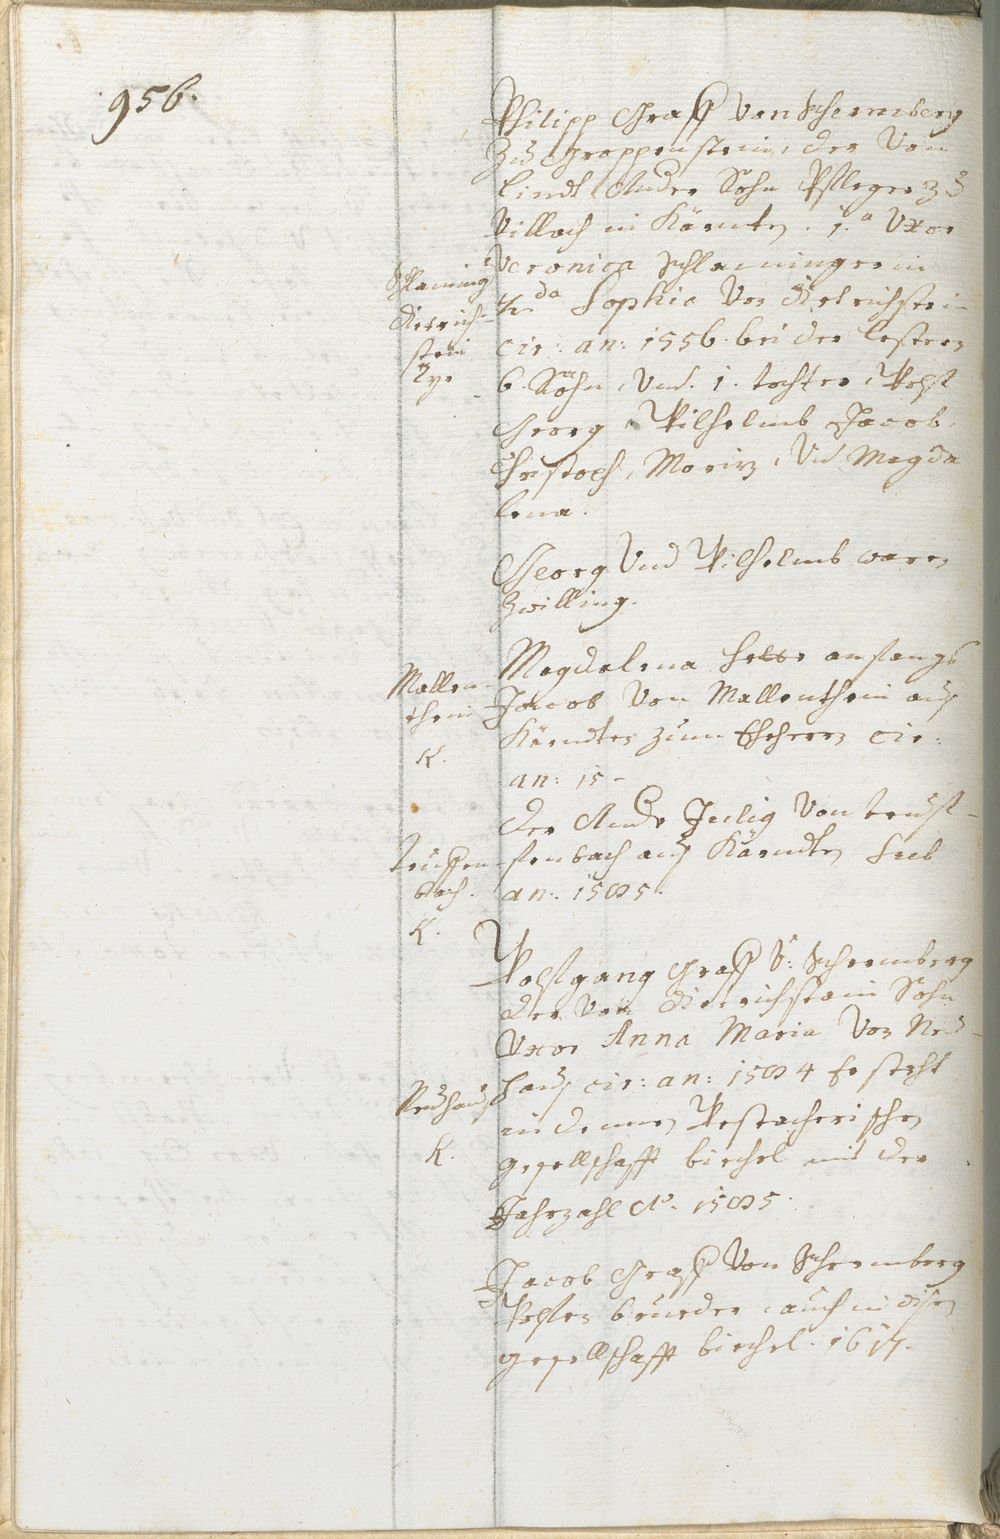 956.
Philipp Graff Von Schermberg
Zu Groppenstein, der Von
Lindt Ander Sohn Pfleger zu
Villach in Kärnten. 1.a Uxor
Veronica Schlamingerin
2da Sophie Von Dietrichstein
cir: an: 1556. bei der lestern
6. Söhn, Und. 1. tochter, Wolf
Georg, Wilhelmb Jacob,
Christoph, Moriz, Und Magda
lena.
Schlaming
Dietrich-
stein
Georg Und Wilhelmb waren
Zwilling.
Magdalena hette anfangs
Jacob Von Mallenthein auß
Kärndten zum Eheherrn cir:
an: 15-
Mallen-
thein
K.
Der Ander Von teuf-
fenbach auß Kärndten
an: 1585.
teuffen-
bach.
K.
Wolfgang Graff V: Schermberg
der Von Dietrichstain Sohn
Uxor Anna Maria Von Neu-
hauß cir: an: 1584 Er steht
in denen
gesellschafft biechel mit der
Jahrzahl Ao. 1585.
Neuhauß
K.
Jacob Graff Von Schermberg
Wolfen brueder, auch in disen
gesellschafft biechel. 1617.